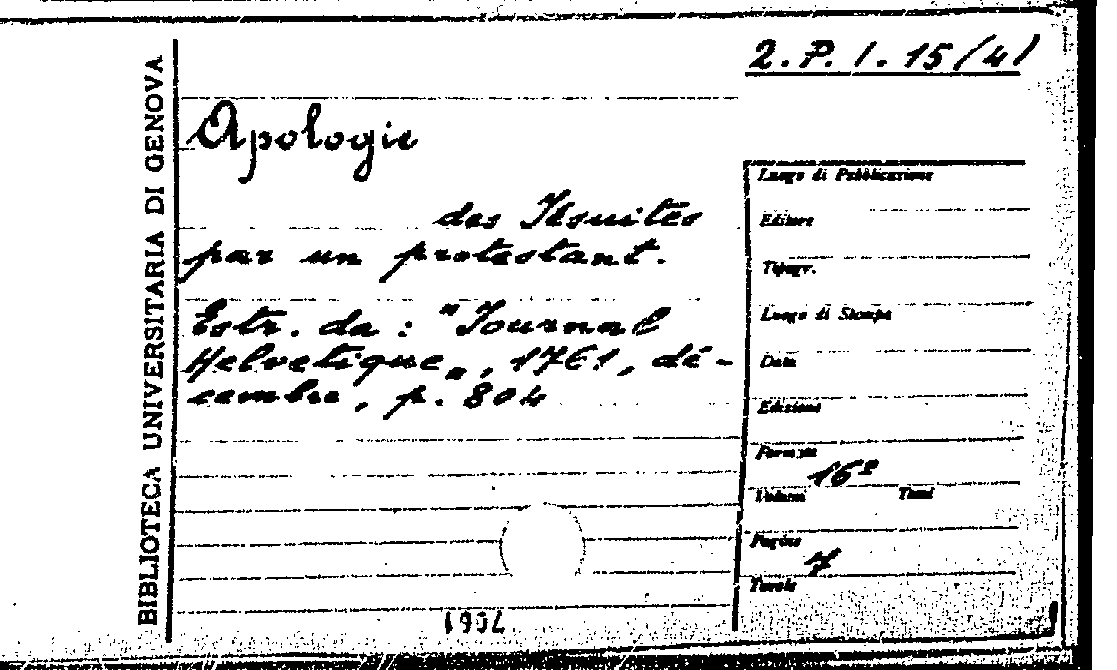 2.P.I.15/4/
BIBLIOTECA UNIVERSITARIA DI GENOVA
Apologie
des Jésuites
par un protestant.
Estr. da: "Journal
Helvetique", 1761, dé-
cembre, p. 804
Luogo di Pubblicazione
Editore
Tipogr.
Luogo di Stampa
Data
Edizione
Formato 16º
Volumi Tomi
Pagine 7
Tavole